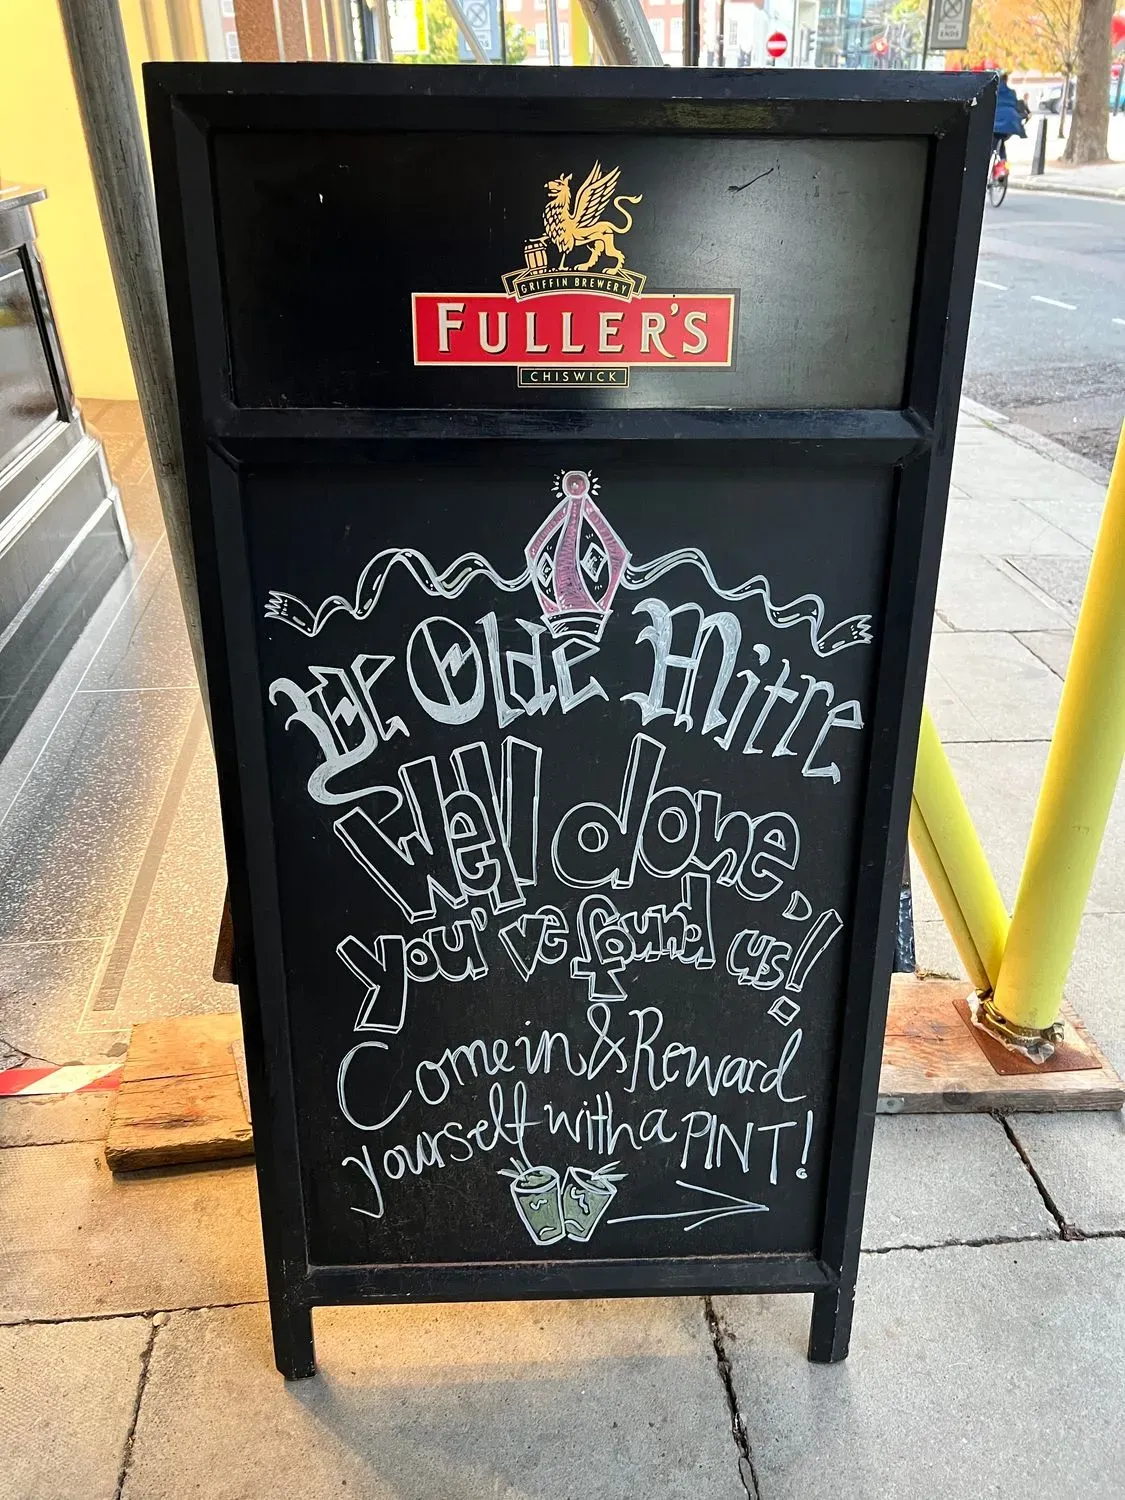 ENDS
GRIFFIN BREWERY
FULLER'S
CHISWICK
Ye Olde Mitre
Well done,
you've found us!
Come in & Reward
yourself with a PINT!